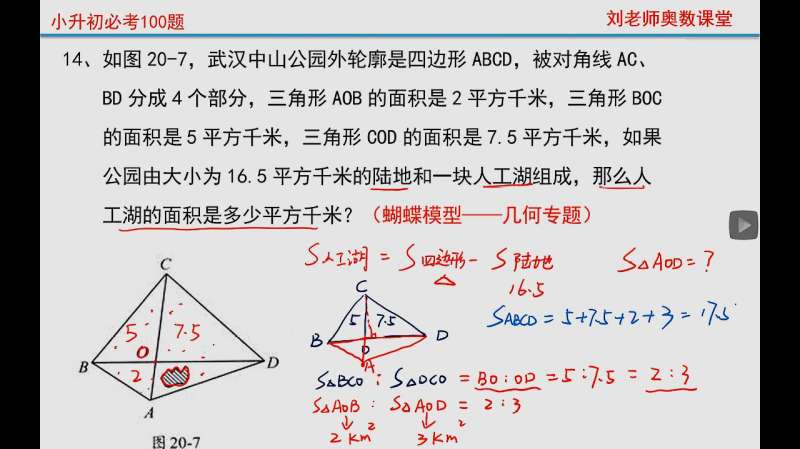 小升初必考100题
刘老师奥数课堂
14、如图 20-7，武汉中山公园外轮廓是四边形 ABCD，被对角线 AC、
BD 分成 4 个部分，三角形 AOB 的面积是 2 平方千米，三角形 BOC
的面积是 5 平方千米，三角形 COD 的面积是 7.5 平方千米，如果
公园由大小为 16.5 平方千米的陆地和一块人工湖组成，那么人
工湖的面积是多少平方千米？（蝴蝶模型——几何专题）
S人工湖 = S四边形 - S陆地
△ 16.5
S△AOD = ?
SABCD = 5+7.5+2+3 = 17.5
C
5 7.5
O
B D
2
A
图 20-7
C
5 7.5
B D
O
A
S△BCO : S△DCO = BO:OD = 5:7.5 = 2:3
S△AOB : S△AOD = 2:3
2 km² 3 km²